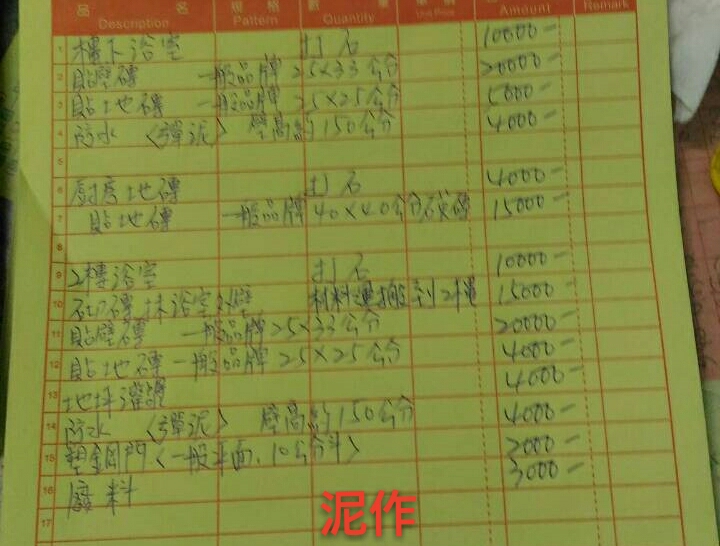 品 名 規 格 數 量 單 價 Amount Remark
Description Pattern Quantity Unit Price
1 樓下浴室 打石 10000-
2 貼壁磚 一般品牌 25×33公分 20000-
3 貼地磚 一般品牌 25×25公分 5000-
4 防水 〈彈泥〉 壁高約150公分 4000-
5
6 廚房地磚 打石 4000-
7 貼地磚 一般品牌 40×40公分 磚 15000-
8
9 2樓浴室 打石 10000-
10 磚 抹浴室 壁 材料運搬到2樓 15000-
11 貼壁磚 一般品牌 25×33公分 20000-
12 貼地磚 一般品牌 25×25公分 4000-
13 地坪灌 4000-
14 防水 〈彈泥〉 壁高約150公分 4000-
15 塑鋼門〈一般平面、10公分 〉 2000-
16 廢料 3000-
17
泥作